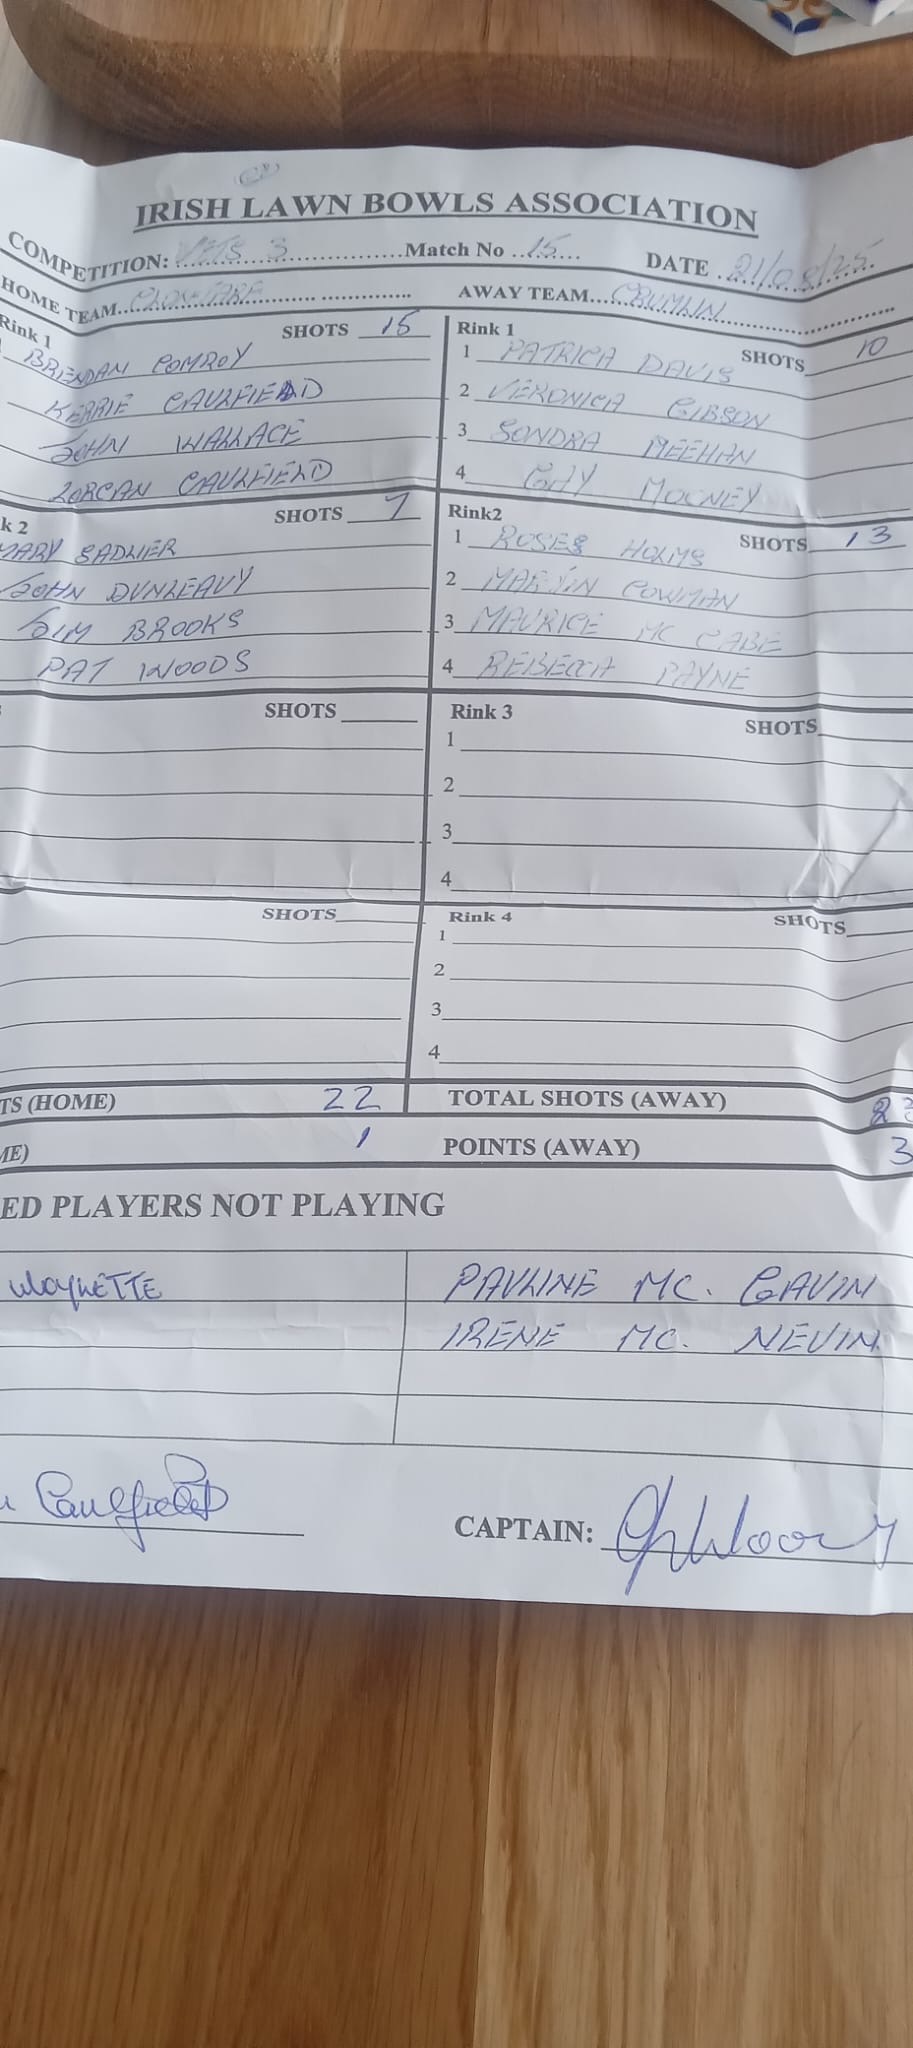 IRISH LAWN BOWLS ASSOCIATION
COMPETITION: VETS 3 Match No 15 DATE 21/08/25
HOME TEAM CLONTARF AWAY TEAM CRUMLIN
Rink 1 SHOTS 15 Rink 1 SHOTS 10
BRENDAN CONROY 1 PATRICA DAVIS
KERRIE CAULFIELD 2 VERONICA GIBSON
JOHN WALLACE 3 SONDRA MEEHAN
LORCAN CAULFIELD 4 GAY MOONEY
k 2 SHOTS 7 Rink2 SHOTS 13
MARY SADLIER 1 ROSES HOLMS
JOHN DUNLEAVY 2 MARTIN COWMAN
JIM BROOKS 3 MAURICE MC CABE
PAT WOODS 4 REBECCA PAYNE
SHOTS Rink 3 SHOTS
1
2
3
4
SHOTS Rink 4 SHOTS
1
2
3
4
TS (HOME) 22 TOTAL SHOTS (AWAY) 23
ME) 1 POINTS (AWAY) 3
ED PLAYERS NOT PLAYING
PAULINE MC. GAVIN
IRENE MC. NEVIN
Caulfield CAPTAIN: